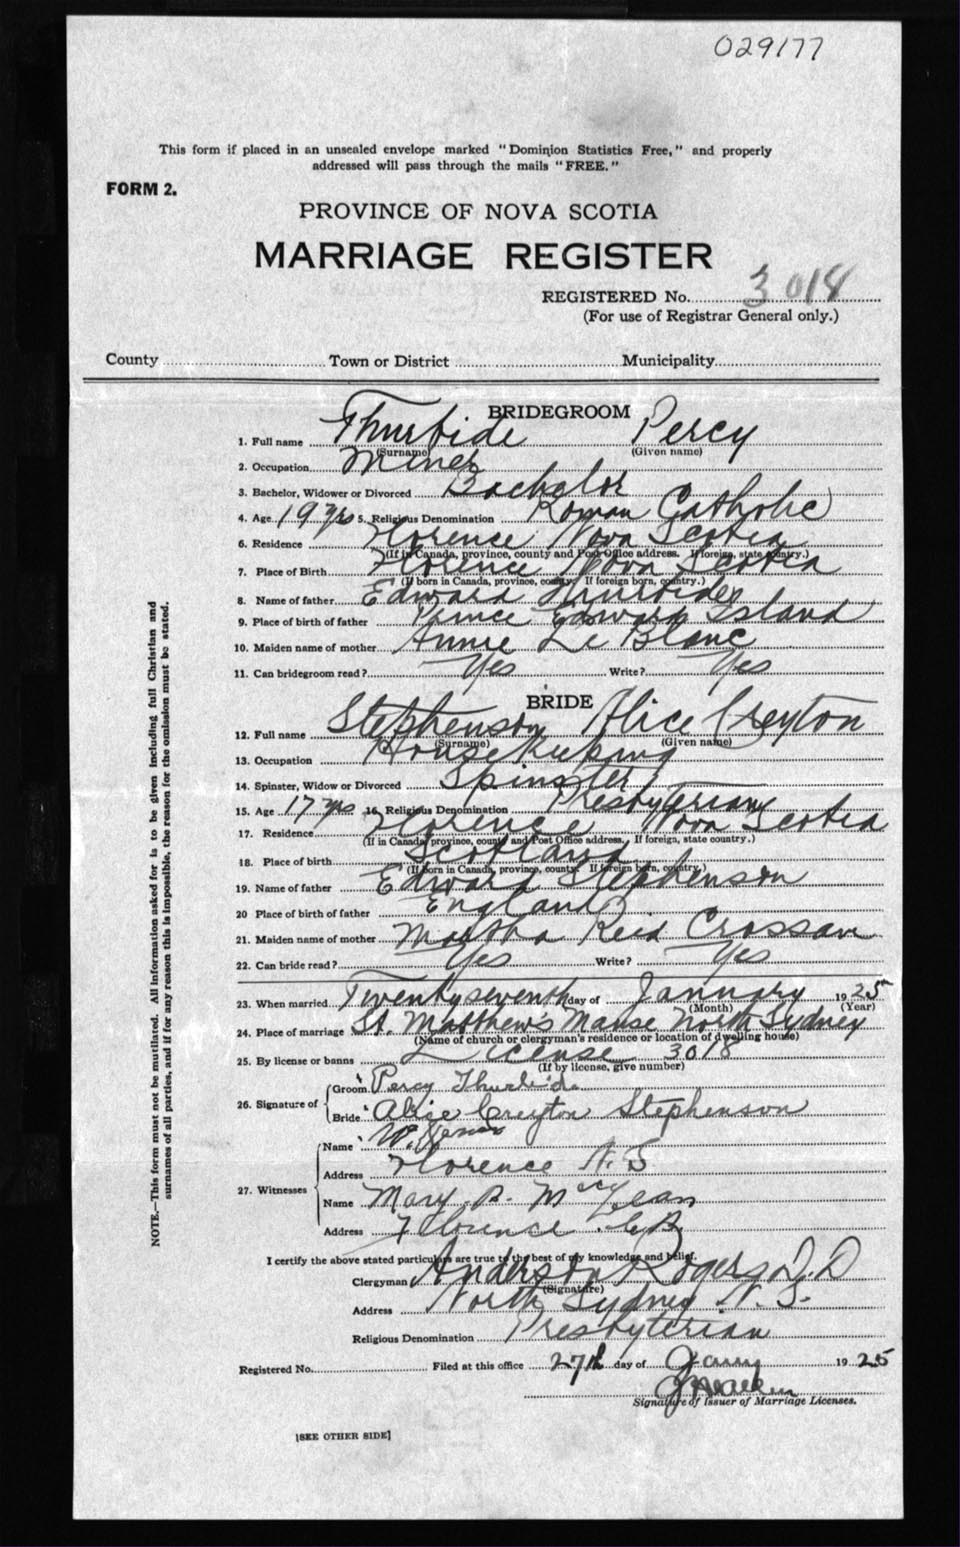 029177
This form if placed in an unsealed envelope marked "Dominion Statistics Free," and properly
addressed will pass through the mails "FREE."
FORM 2.
PROVINCE OF NOVA SCOTIA
MARRIAGE REGISTER
REGISTERED No. 3018
(For use of Registrar General only.)
County Town or District Municipality
BRIDEGROOM
1. Full name Thurbide Percy
(Surname) (Given name)
2. Occupation Miner
3. Bachelor, Widower or Divorced Bachelor
4. Age 19 yrs 5. Religious Denomination Roman Catholic
6. Residence Florence Nova Scotia
(If in Canada, province, county and Post Office address. If foreign, state country.)
7. Place of Birth Florence Nova Scotia
(If born in Canada, province, county. If foreign born, country.)
8. Name of father Edward Thurbide
9. Place of birth of father Prince Edward Island
10. Maiden name of mother Annie Le Blanc
11. Can bridegroom read? Yes Write? Yes
BRIDE
12. Full name Stephenson Alice Creyton
(Surname) (Given name)
13. Occupation House Keeping
14. Spinster, Widow or Divorced Spinster
15. Age 17 yrs 16. Religious Denomination Presbyterian
17. Residence Florence Nova Scotia
(If in Canada, province, county and Post Office address. If foreign, state country.)
18. Place of birth Scotland
(If born in Canada, province, county. If foreign born, country.)
19. Name of father Edward Stephenson
20 Place of birth of father England
21. Maiden name of mother Martha Reid Crossan
22. Can bride read? Yes Write? Yes
23. When married Twentyseventh day of January 1925
(Month) (Year)
24. Place of marriage St. Matthew's Manse North Sydney
(Name of church or clergyman's residence or location of dwelling house)
25. By license or banns License 3018
(If by license, give number)
26. Signature of Groom Percy Thurbide
Bride Alice Creyton Stephenson
27. Witnesses Name W.
Address Florence N.S
Name Mary B. McLean
Address Florence C.B.
I certify the above stated particulars are true to the best of my knowledge and belief.
Clergyman Anderson Rogers D.D
(Signature)
Address North Sydney N.S.
Religious Denomination Presbyterian
Registered No. Filed at this office 27th day of Jany 1925
Signature of Issuer of Marriage Licenses.
[SEE OTHER SIDE]
NOTE.—This form must not be mutilated. All information asked for is to be given including full Christian and
surnames of all parties, and if for any reason this is impossible, the reason for the omission must be stated.